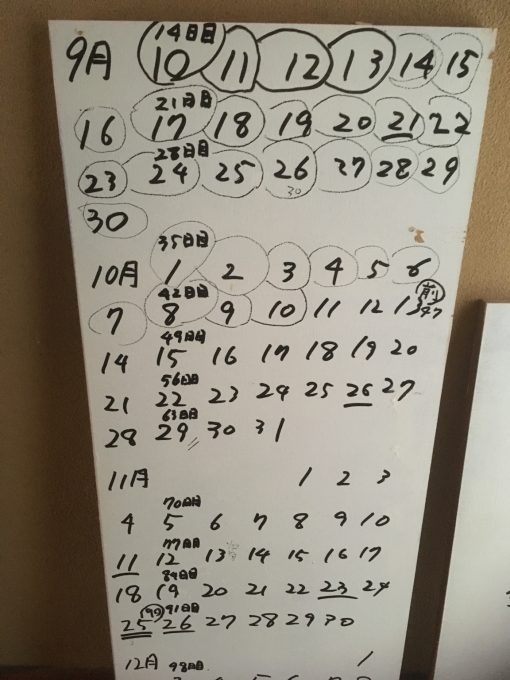 14日目
9月 10 11 12 13 14 15
21日目
16 17 18 19 20 21 22
28日目
23 24 25 26 27 28 29
30
30
35日目
10月 1 2 3 4 5 6
42日目 前
7 8 9 10 11 12 13 47
49日目
14 15 16 17 18 19 20
56日目
21 22 23 24 25 26 27
63日目
28 29 30 31
11月 1 2 3
70日目
4 5 6 7 8 9 10
77日目
11 12 13 14 15 16 17
84日目
18 19 20 21 22 23 24
91日目
25 26 27 28 29 30
12月 98日目 1